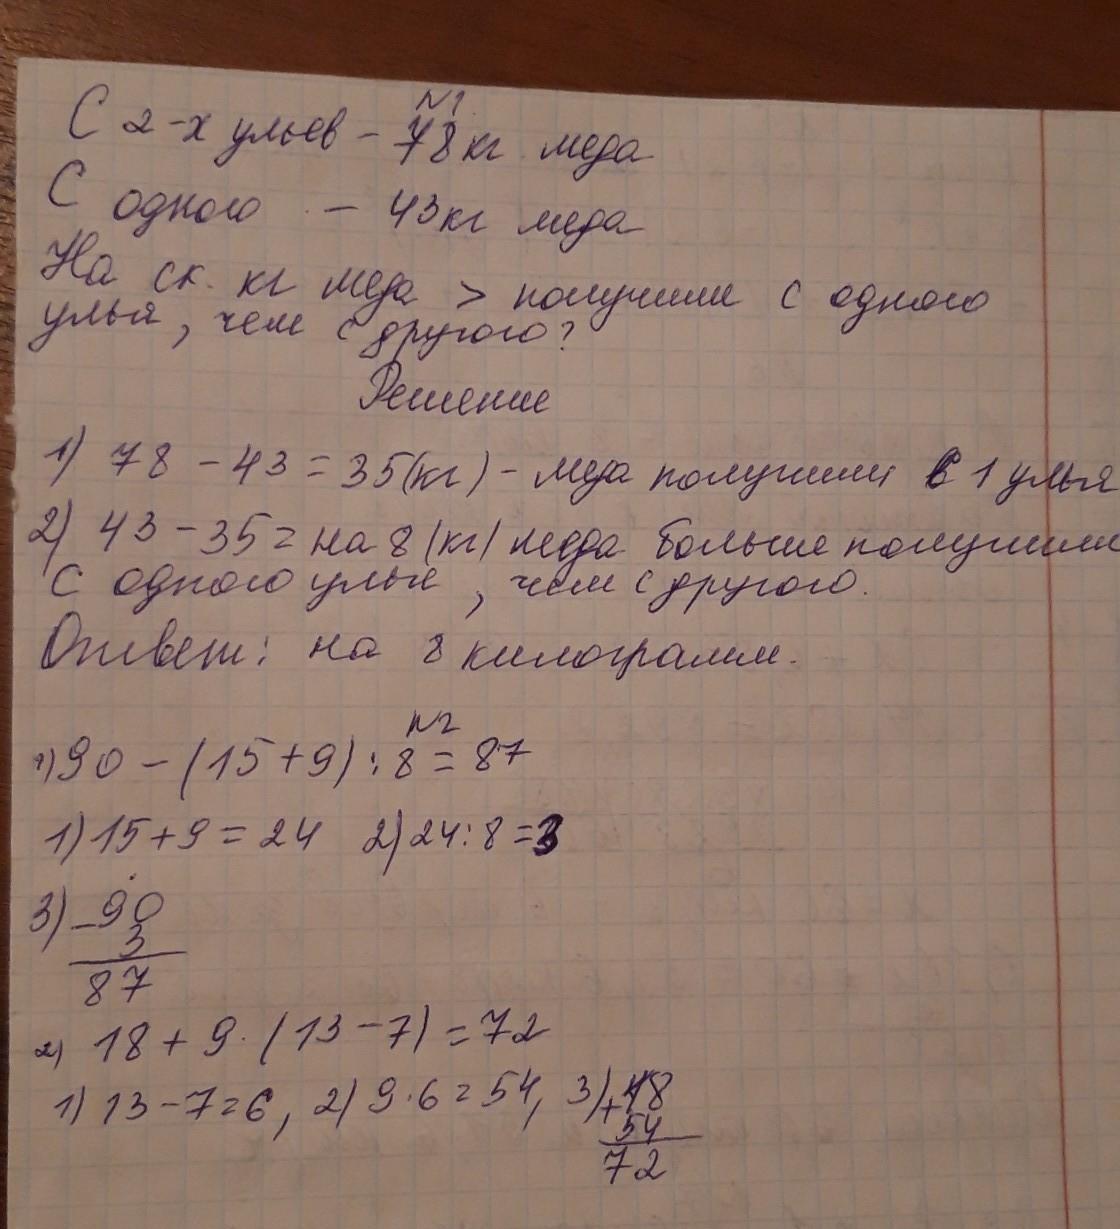 №1
С 2-х ульев - 78кг меда
С одного - 43кг меда
На ск. кг меда > получили с одного
улья, чем с другого?
Решение
1) 78 - 43 = 35(кг) - меда получили с 1 улья
2) 43 - 35 = на 8 (кг) меда больше получили
с одного улья, чем с другого.
Ответ: на 8 килограмм.
№2
1) 90 - (15 + 9) : 8 = 87
1) 15 + 9 = 24 2) 24 : 8 = 3
3) - 90
3
87
2) 18 + 9 · (13 - 7) = 72
1) 13 - 7 = 6, 2) 9 · 6 = 54, 3) + 18
54
72